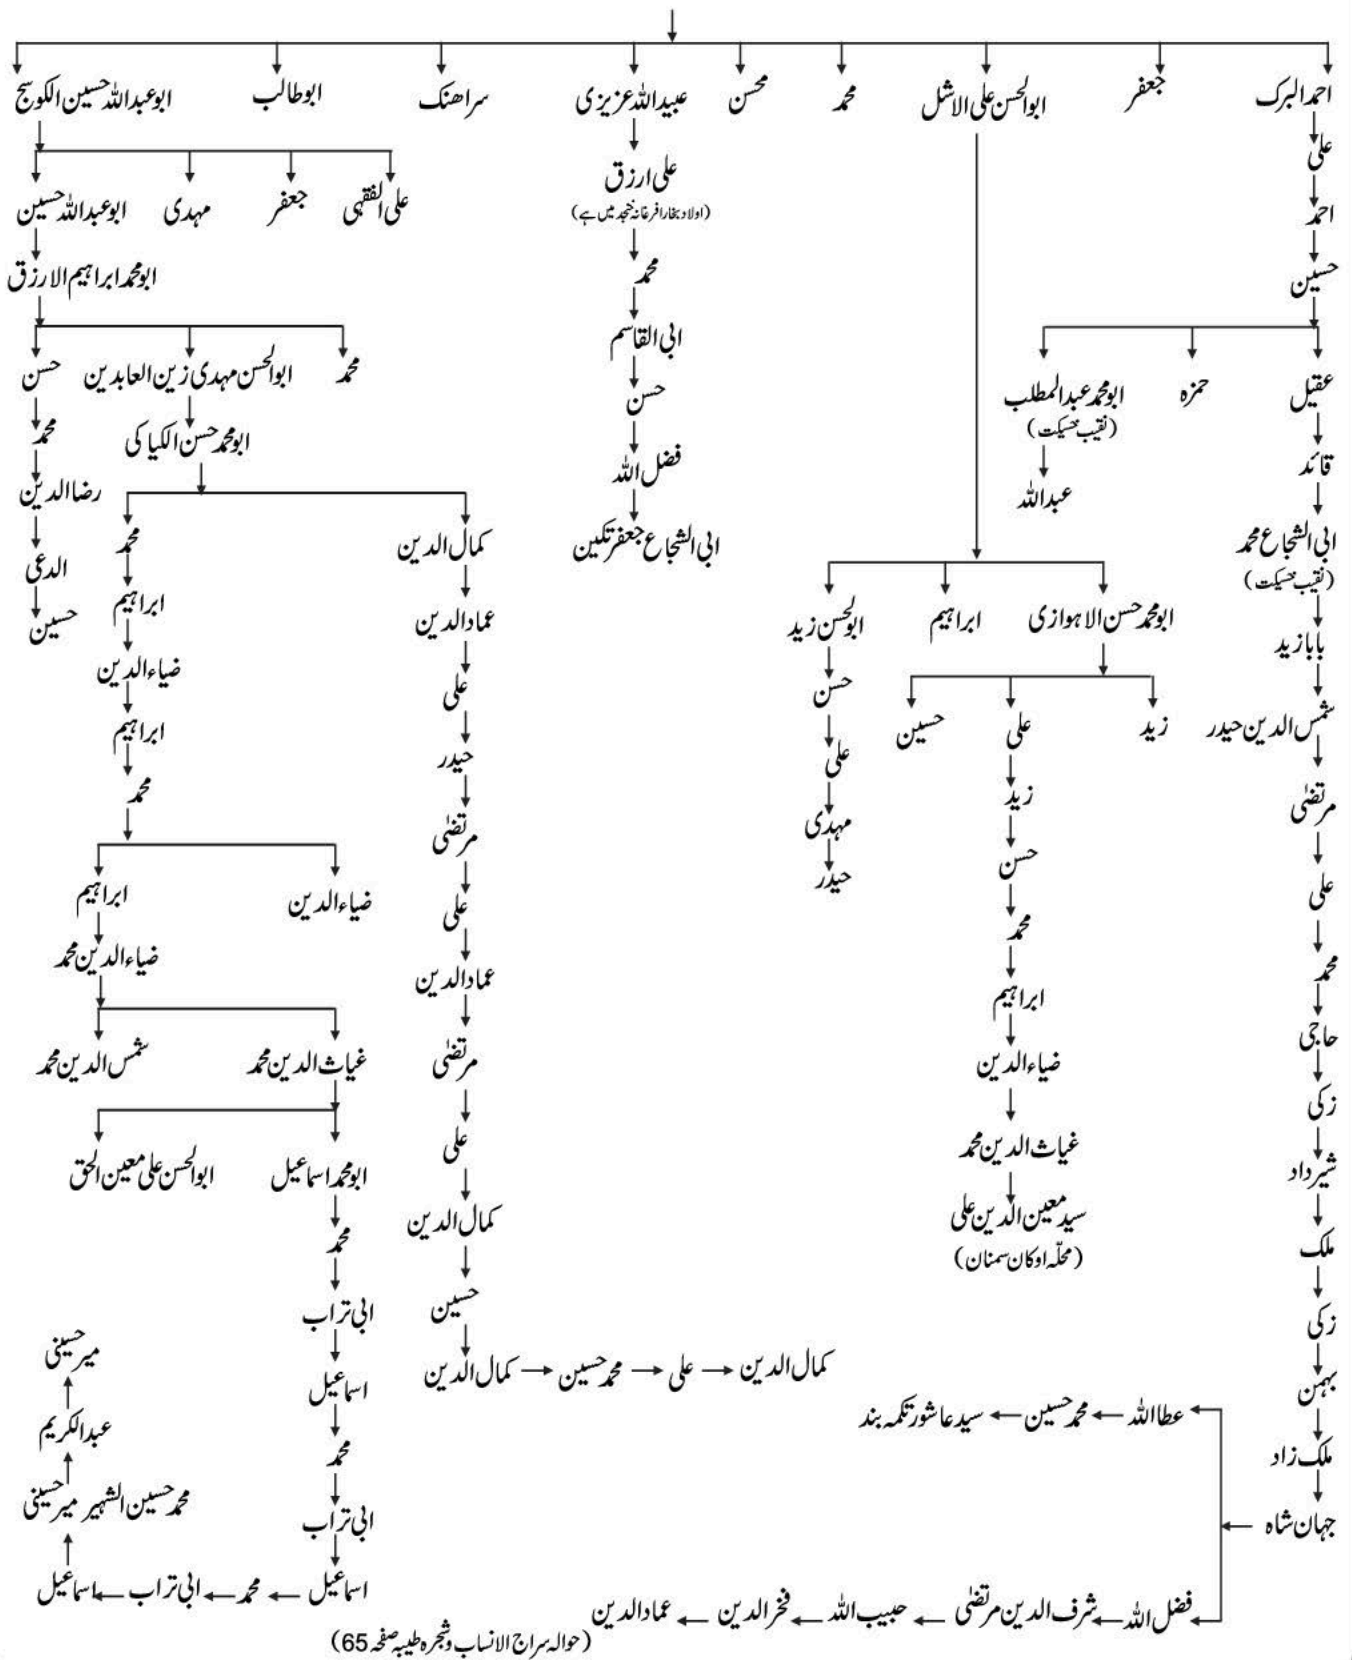 احمد البرک
جعفر
ابوالحسن علی الاشل
محمد
محسن
عبیداللہ عزیزی
سراھنک
ابوطالب
ابوعبداللہ حسین الکوسج
علی
احمد
حسین
عقیل
حمزہ
ابومحمد عبدالمطلب
عبداللہ
(نقیب
قائد
ابی الشجاع محمد
(نقیب
بابازید
شمس الدین حیدر
مرتضیٰ
علی
محمد
حاجی
زکی
شیرداد
ملک
زکی
بہمن
ملک زاد
جہان شاہ
عطااللہ
محمد حسین
سید عاشور تکمہ بند
فضل اللہ
شرف الدین مرتضیٰ
حبیب اللہ
فخرالدین
عمادالدین
ابومحمد حسن الاہوازی
ابراہیم
ابوالحسن زید
زید
علی
حسین
زید
حسن
محمد
ابراہیم
ضیاءالدین
غیاث الدین محمد
سید معین الدین علی
(محلّہ اوکان سمنان)
حسن
علی
مہدی
حیدر
علی ارزق
(اولاد بخارا فرغانہ خجند میں ہے)
محمد
ابی القاسم
حسن
فضل اللہ
ابی الشجاع جعفر تکین
علی الفقہی
جعفر
مہدی
ابوعبداللہ حسین
ابومحمد ابراہیم الارزق
محمد
ابوالحسن مہدی زین العابدین
حسن
ابومحمد حسن الکیاکی
محمد
رضاالدین
الدعی
حسین
کمال الدین
محمد
عمادالدین
علی
حیدر
مرتضیٰ
علی
عمادالدین
مرتضیٰ
علی
کمال الدین
حسین
کمال الدین
محمد حسین
علی
کمال الدین
ابراہیم
ضیاءالدین
ابراہیم
محمد
ضیاءالدین
ابراہیم
ضیاءالدین محمد
غیاث الدین محمد
شمس الدین محمد
ابومحمد اسماعیل
ابوالحسن علی معین الحق
محمد
ابی تراب
اسماعیل
محمد
ابی تراب
اسماعیل
محمد
ابی تراب
اسماعیل
محمد حسین الشہیر میر حسینی
عبدالکریم
میر حسینی
(حوالہ سراج الانساب وشجرہ طیبہ صفحہ 65)